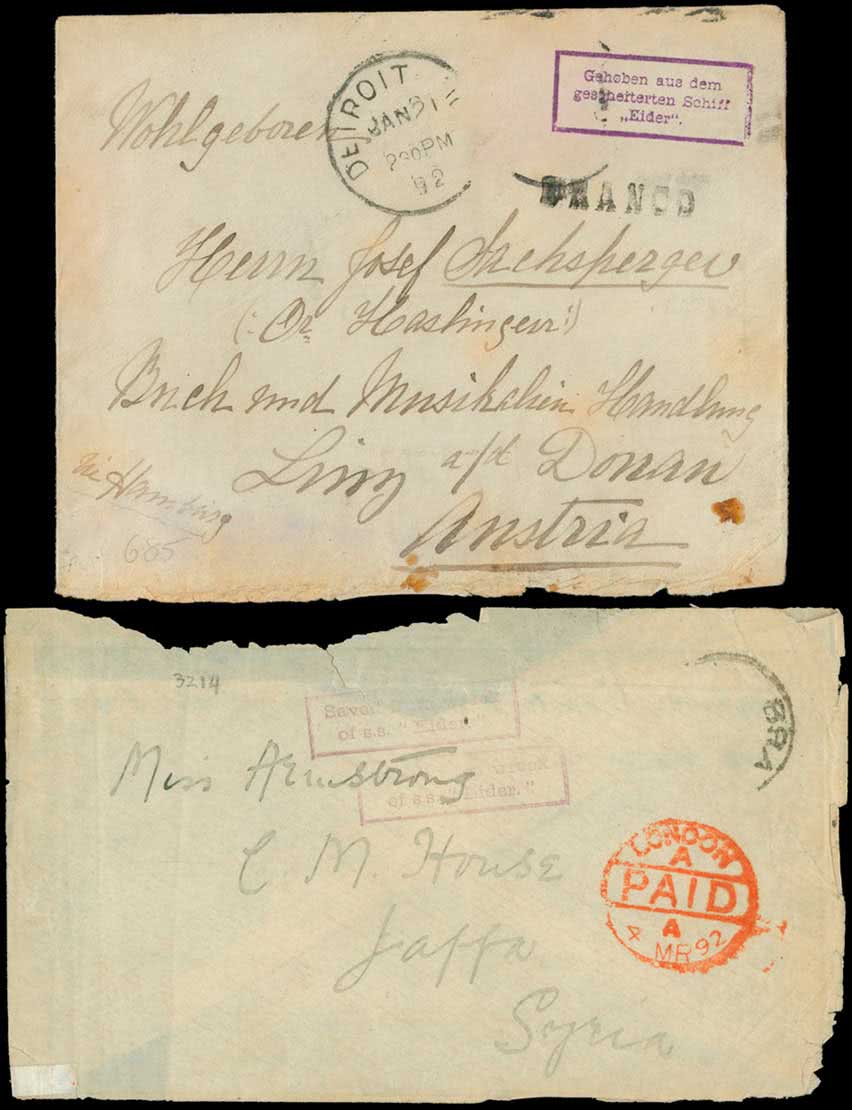 DETROIT
JAN 21
PM
92
Gehoben aus dem
gescheiterten Schiff
„Eider“.
Wohlgeboren
Herrn Josef
(: Dr. Haslinger :)
Buch und Musikalien Handlung
Linz a/d Donau
Austria
Hamburg
685
3214
Save
of s.s. "Eider."
wreck
of s.s. "Eider."
Miss Armstrong
C. M. House
Jaffa
Syria
LONDON
A
PAID
A
4 MR 92